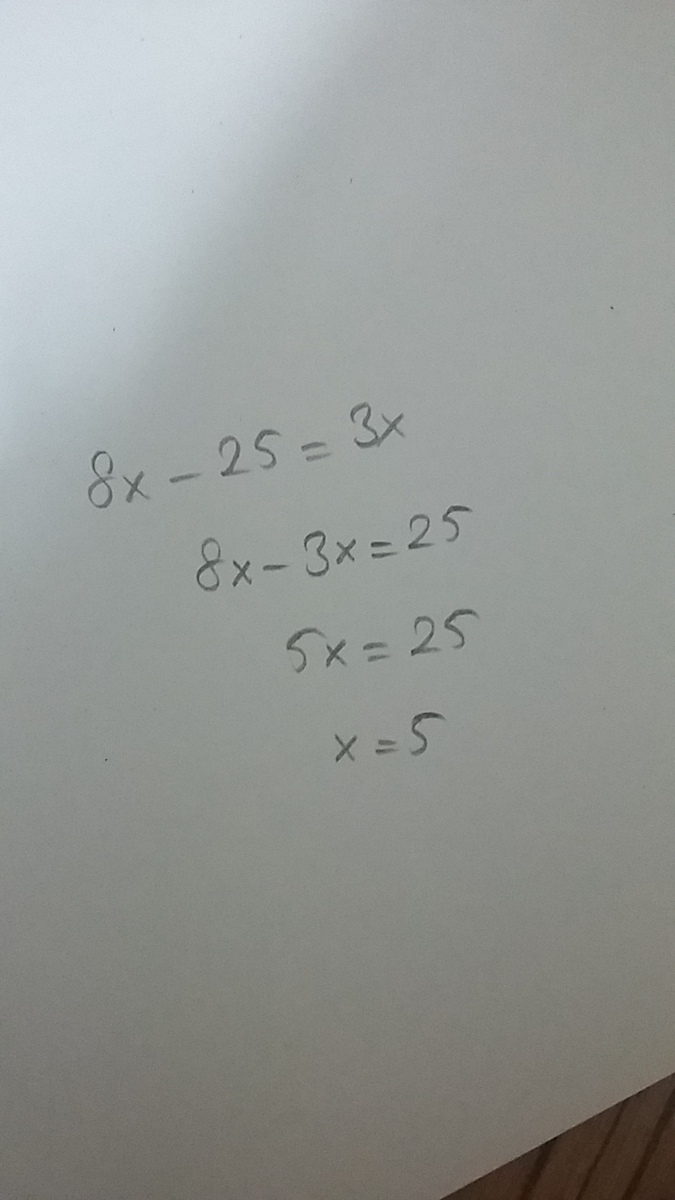 8x - 25 = 3x
8x - 3x = 25
5x = 25
x = 5